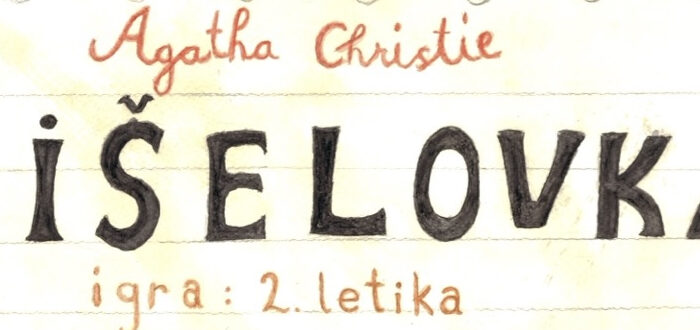 Agatha Christie
iŠELOVK
igra: 2. letika